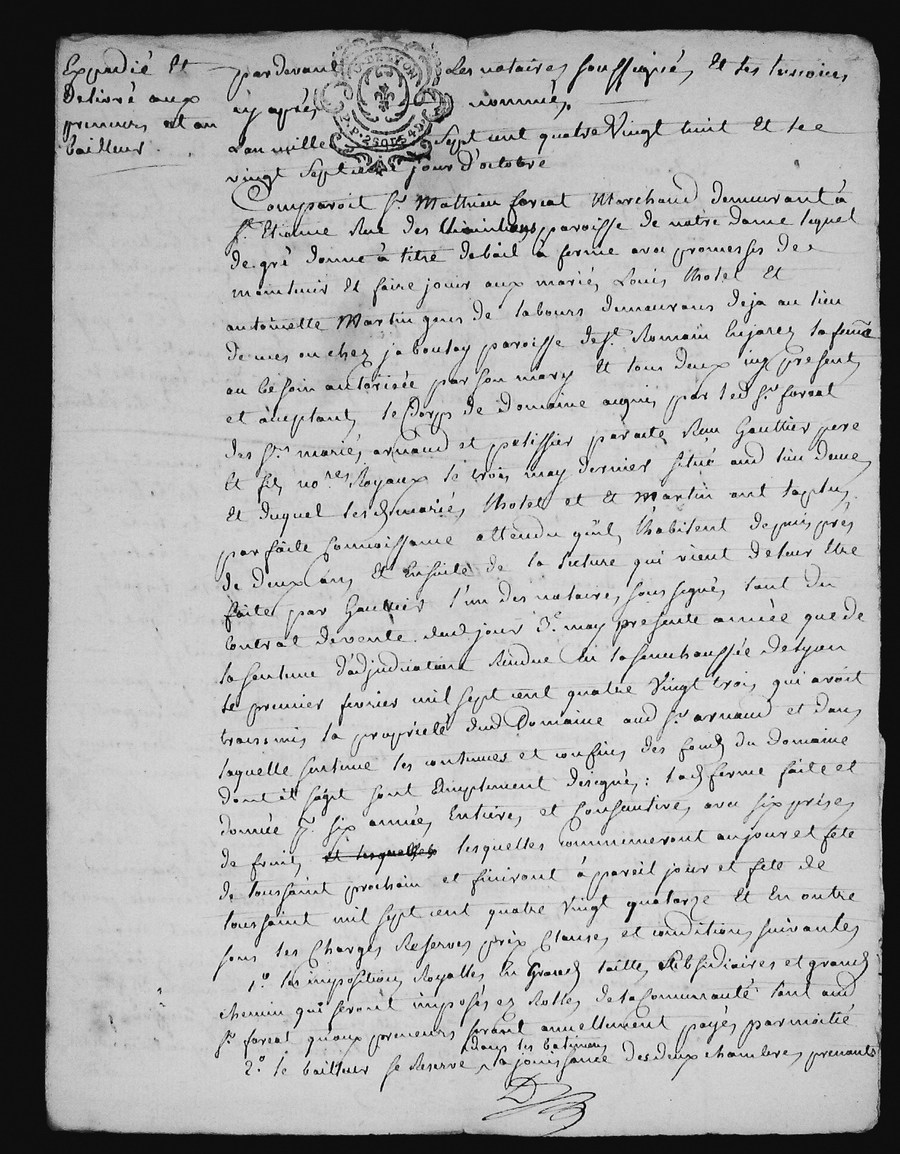 Expedié Et
Delivré aux
preneurs et au
bailleur.
G. DE LYON
2.S.
pardevant Les notaires soussignés Et les temoins
cy après nommés.
L'an mille sept cent quatre Vingt huit Et le
vingt septieme jour d'octobre
Comparoit Sr. Mathieu foreat Marchand demeurant à
St. Etienne Rue des paroisse de notre dame lequel
de gré donne à titre de bail à ferme avec promesses de
maintenir Et faire jouir aux mariés Louis thotel Et
antoinette Martin gens de labours demeurans deja au lieu
de mes ou chez jaboulay paroisse de St. Romain En jarez la feme
au besoin autorisée par son mary Et tous deux icy presents
et acceptants, le Corps de domaine acquis par led Sr. foreat
des Srs. mariés arnaud et patissier par acte Reçu Gaulthier pere
Et fils nores Royaux le trois may dernier situé aud lieu de mes
Et duquel lesd mariés thotel et Et Martin ont la plus
parfaite Connoissance attendu qu'ils l'habitent depuis près
de deux ans Et Ensuite de la lecture qui vient de leur Etre
faite par Gaultier l'un des notaires sous signés tant du
Contrat de vente dud jour 3e. may presente année que de
la sentence d'adjudication Rendue En la senechaussée de Lyon
le premier fevrier mil sept cent quatre Vingt trois qui avoit
transmis la propriété dud Domaine aud Sr. arnaud et dans
laquelle sentence les contenues et confins des fonds du domaine
dont il s'agit sont Amplement designés : lad ferme faite et
donnée pr. six années Entieres et Consecutives avec six prises
de fruits et lesquelles lesquelles commenceront au jour et fete
de toussaint prochain et finiront à pareil jour et fete de
toussaint mil sept cent quatre vingt quatorze Et En outre
sous les Charges Reserves prix Clauses et conditions suivantes
1o. les impositions Royalles En Grands tailles subsidiaires et grands
chemin qui seront imposés es Rolles de la Communauté tant aud
Sr. foreat qu'aux preneurs seront annuellement payés par moitié
dans les batimens
2o. le bailleur se Reserve la jouissance des deux chambres prenants